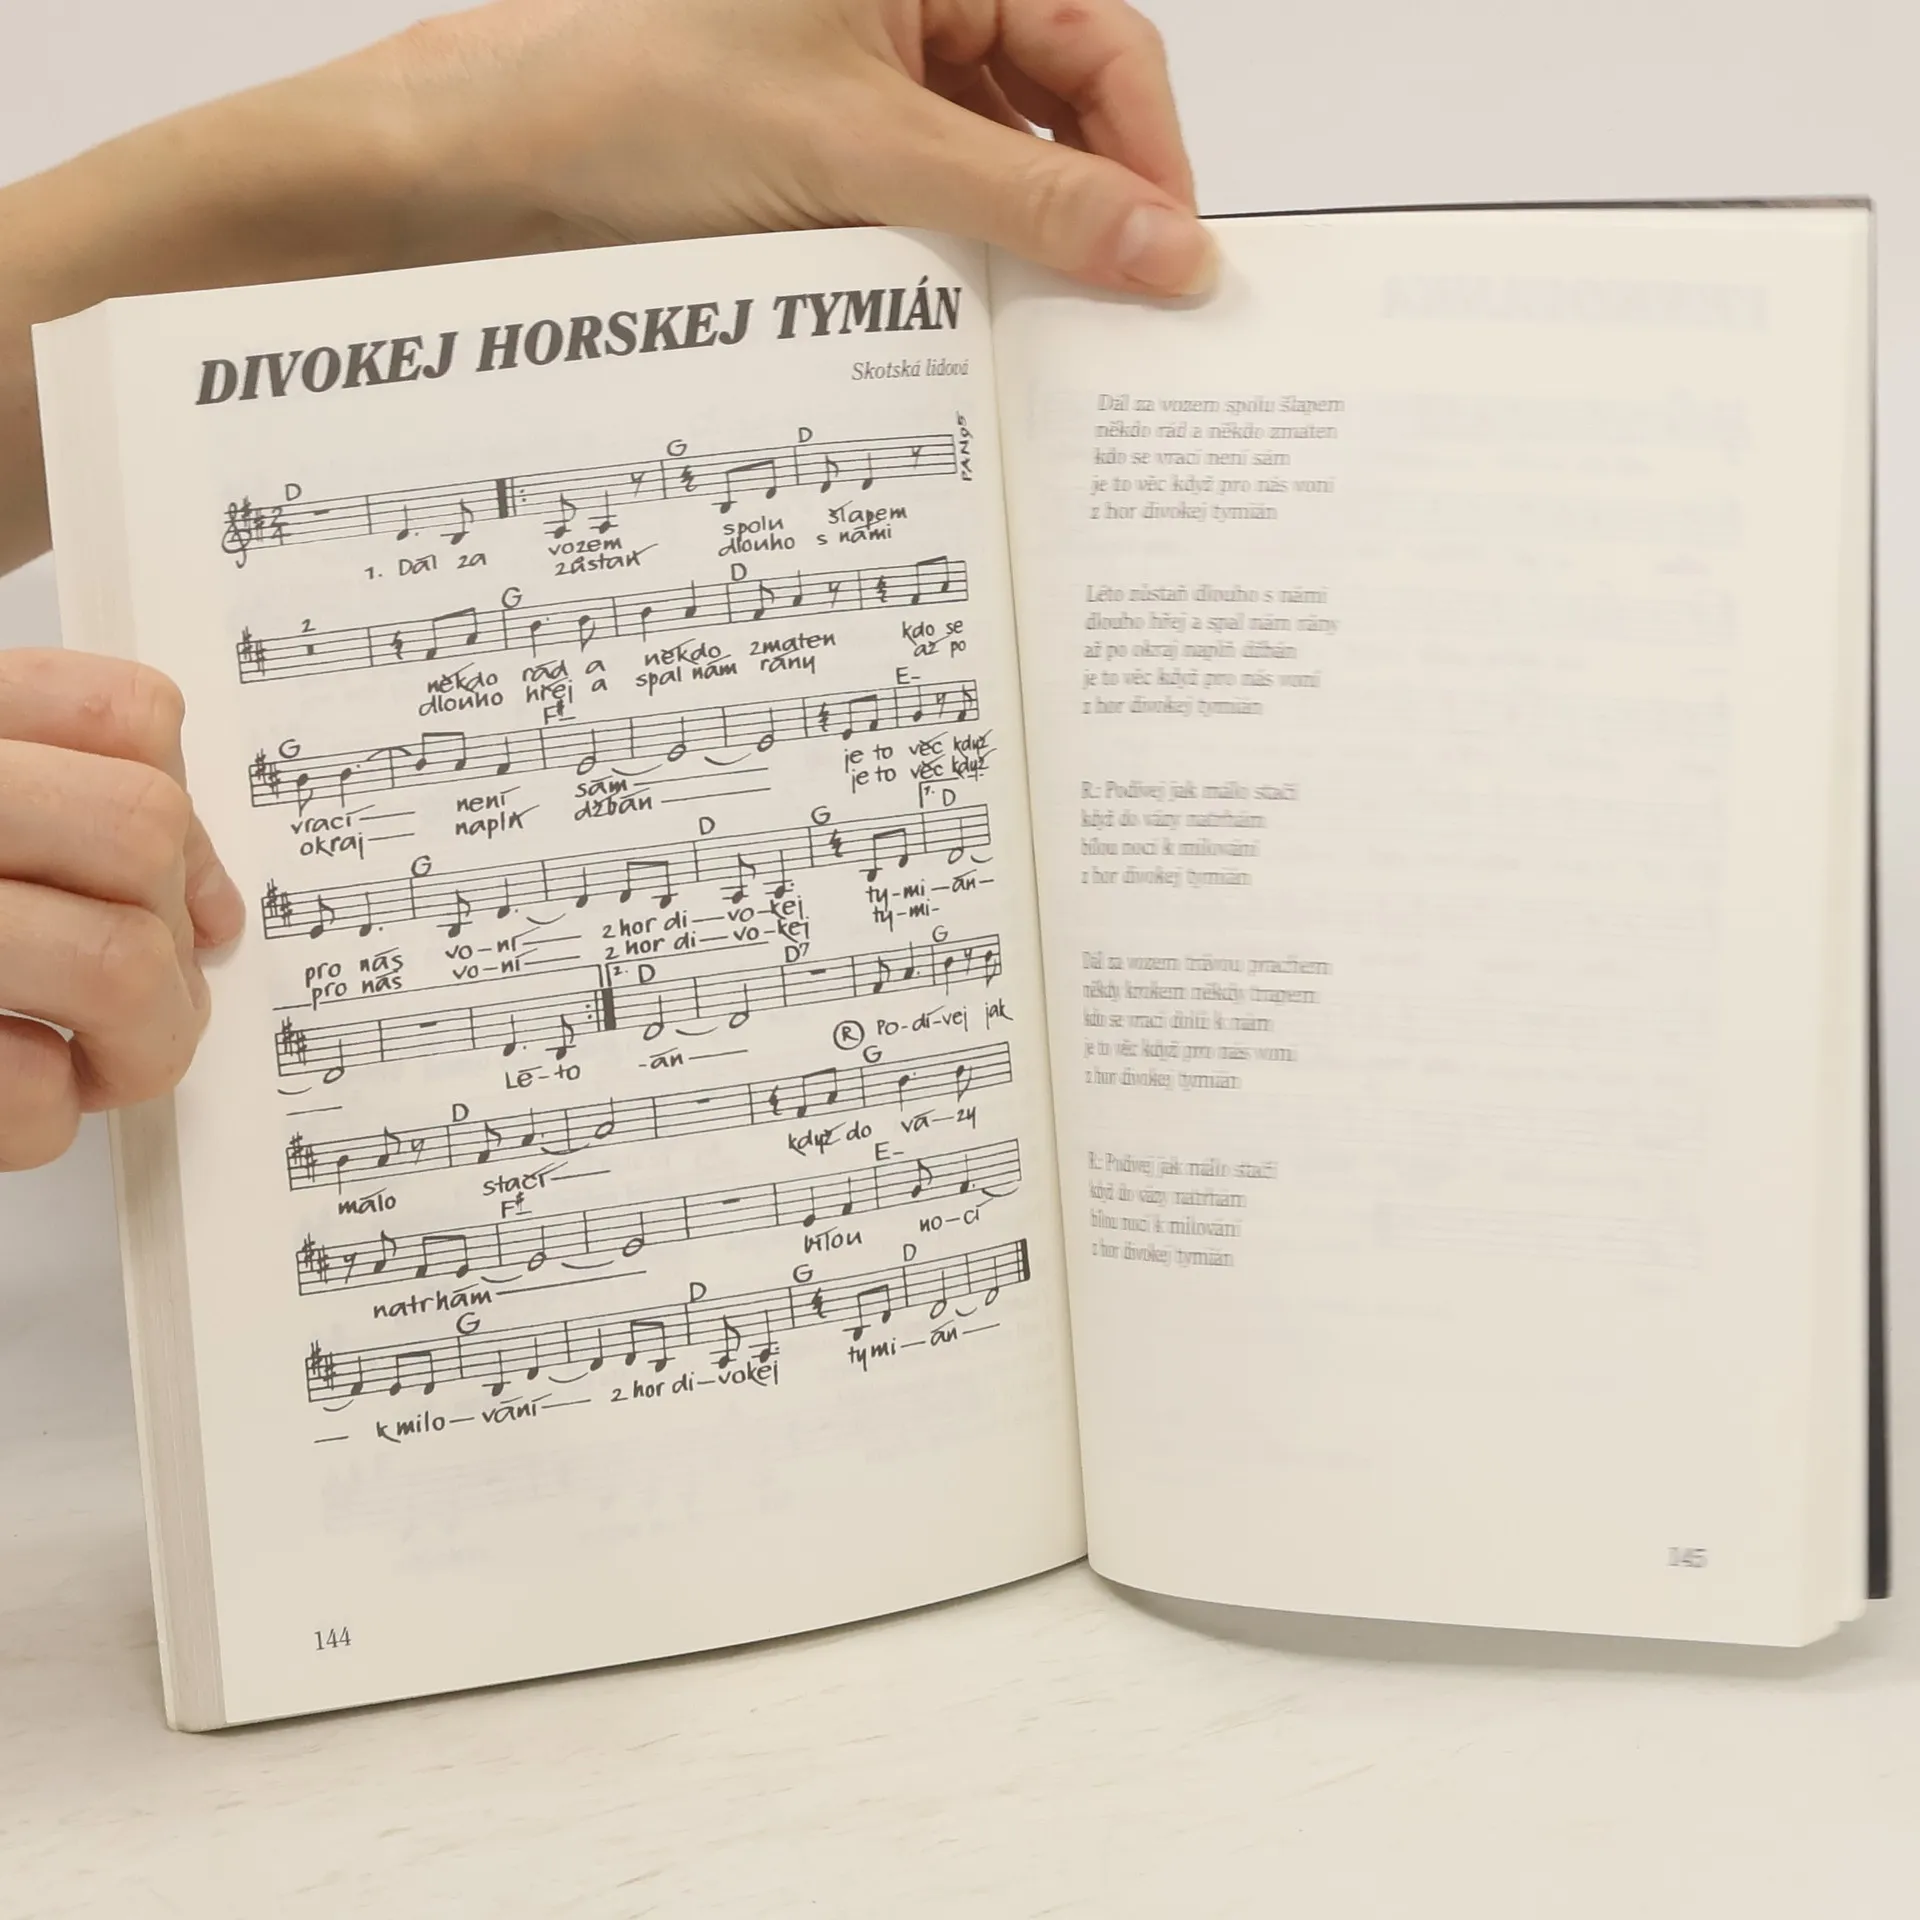 DIVOKEJ HORSKEJ TYMIÁN
Skotská lidová
PAN95
D G D
1. Dál za vozem spolu šlapem
zůstaň dlouho s námi
2 G D
někdo rád a někdo zmaten kdo se
dlouho hřej a spal nám rány až po
G F# E-
vrací není sám je to věc když
okraj naplň džbán je to věc když
G D G 1. D
pro nás vo-ní z hor di-vo-kej ty-mi-án-
pro nás vo-ní z hor di-vo-kej ty-mi-
2. D D7 G
Lé-to -án R Po-dí-vej jak
D G
málo stačí když do vá-zy
F# E-
natrhám bílou no-cí
G D G D
k milo-vání z hor di-vokej tymi-án
144
Dál za vozem spolu šlapem
někdo rád a někdo zmaten
kdo se vrací není sám
je to věc když pro nás voní
z hor divokej tymián
Léto zůstaň dlouho s námi
dlouho hřej a spal nám rány
až po okraj naplň džbán
je to věc když pro nás voní
z hor divokej tymián
R: Podívej jak málo stačí
když do vázy natrhám
bílou nocí k milování
z hor divokej tymián
Dál za vozem trávou prachem
někdy krokem někdy trapem
kdo se vrací dolů k nám
je to věc když pro nás voní
z hor divokej tymián
R: Podívej jak málo stačí
když do vázy natrhám
bílou nocí k milování
z hor divokej tymián
145